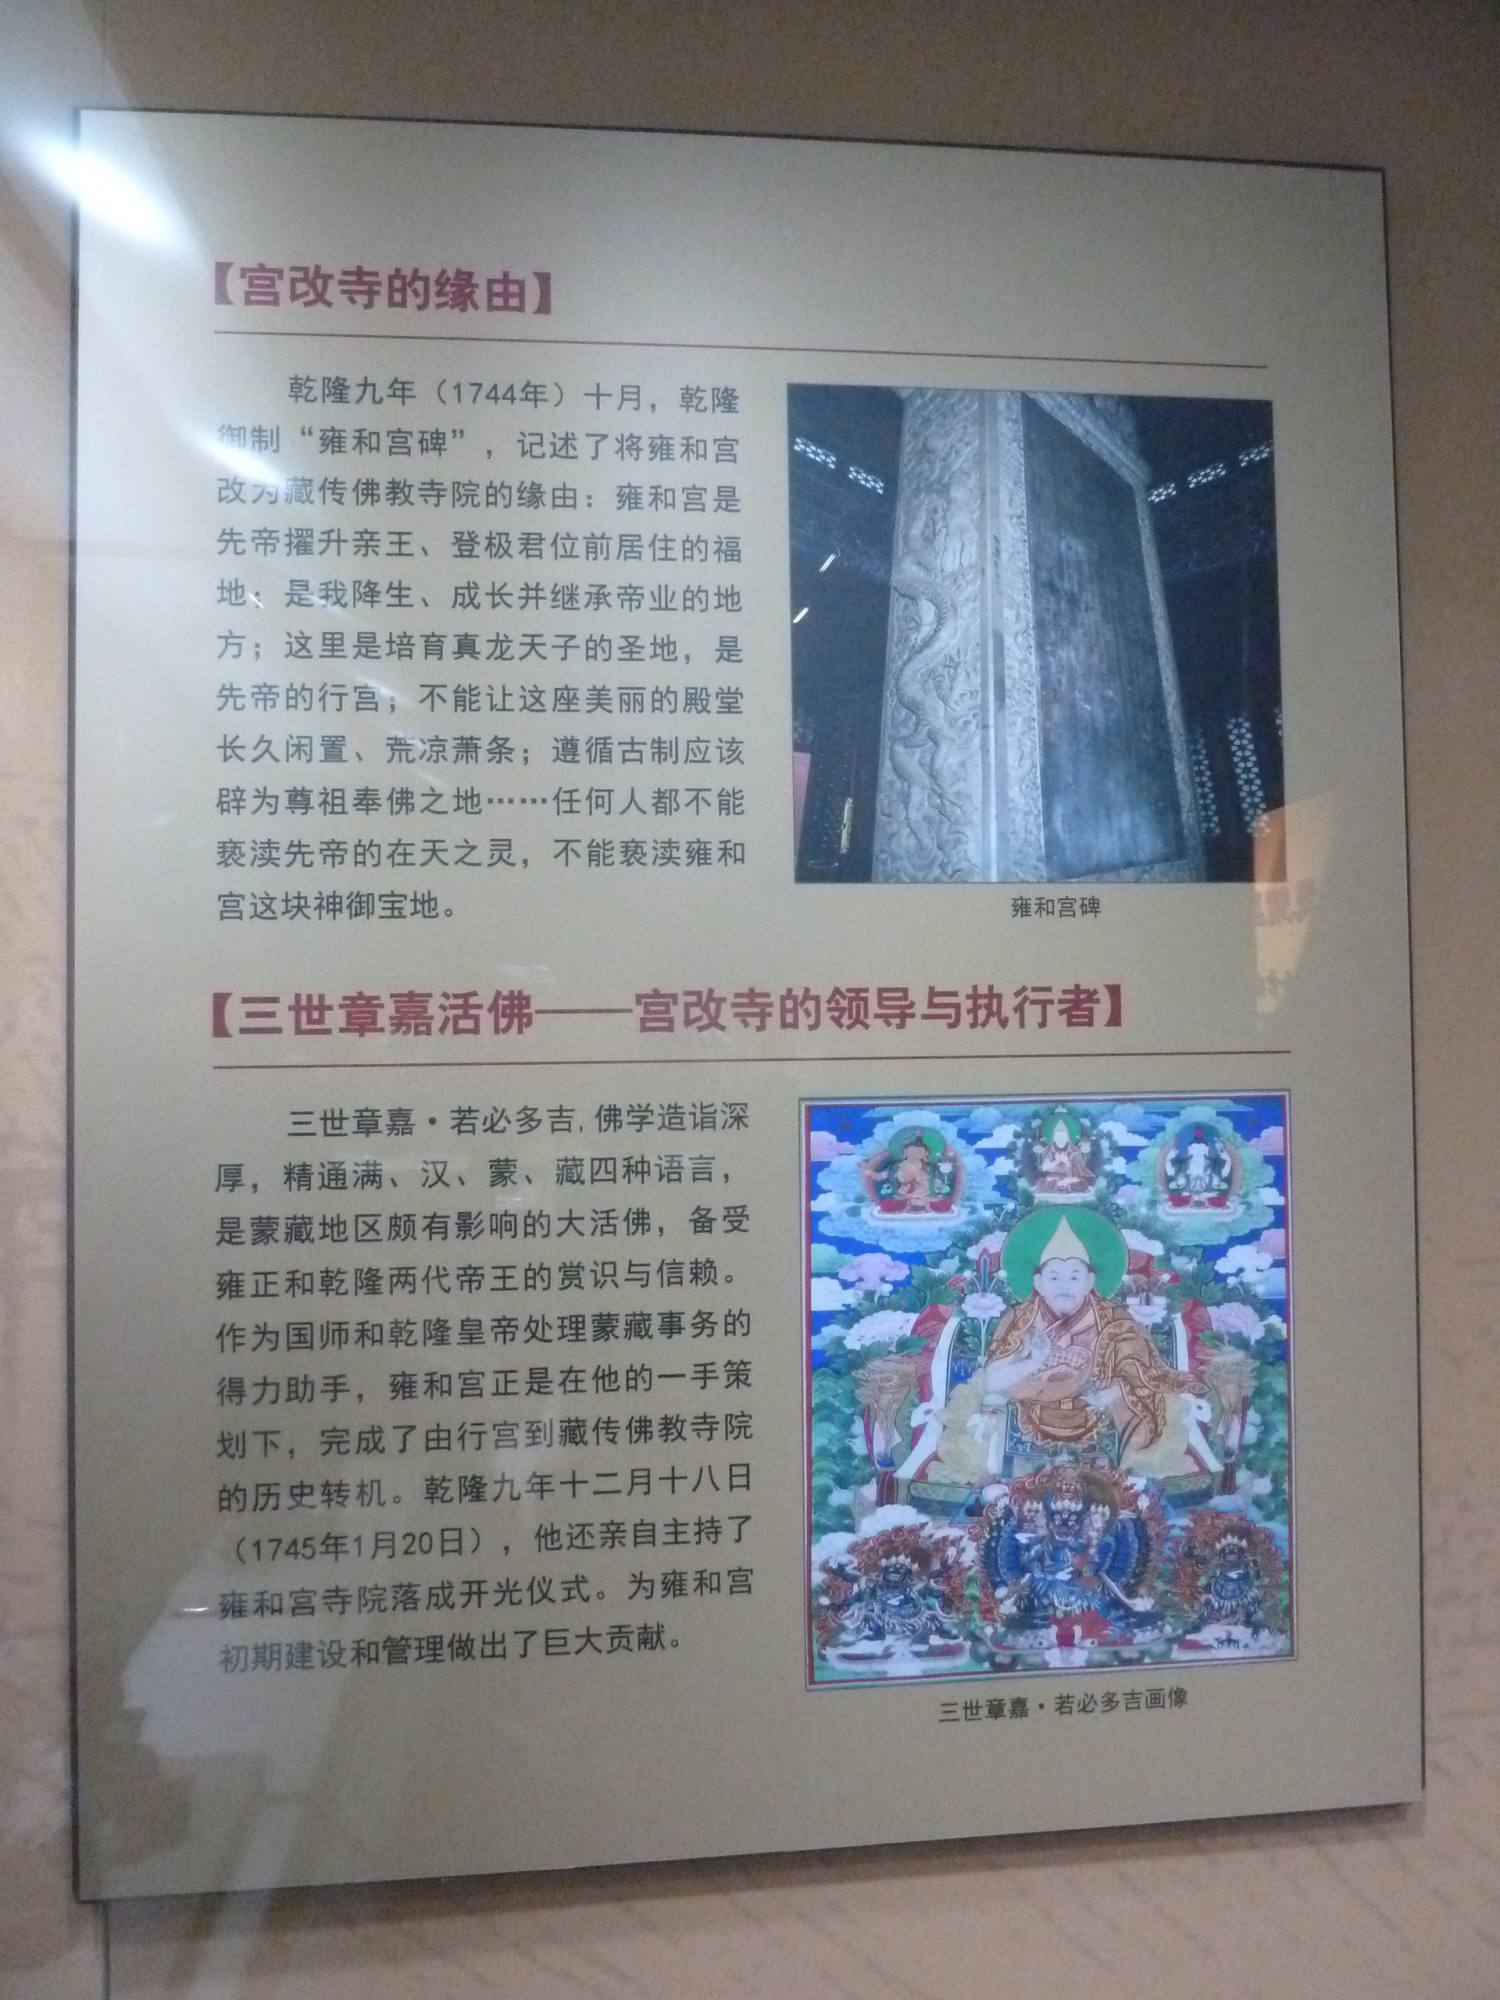 【宫改寺的缘由】
乾隆九年（1744年）十月，乾隆
御制“雍和宫碑”，记述了将雍和宫
改为藏传佛教寺院的缘由：雍和宫是
先帝擢升亲王、登极君位前居住的福
地；是我降生、成长并继承帝业的地
方；这里是培育真龙天子的圣地，是
先帝的行宫；不能让这座美丽的殿堂
长久闲置、荒凉萧条；遵循古制应该
辟为尊祖奉佛之地……任何人都不能
亵渎先帝的在天之灵，不能亵渎雍和
宫这块神御宝地。
雍和宫碑
【三世章嘉活佛——宫改寺的领导与执行者】
三世章嘉·若必多吉，佛学造诣深
厚，精通满、汉、蒙、藏四种语言，
是蒙藏地区颇有影响的大活佛，备受
雍正和乾隆两代帝王的赏识与信赖。
作为国师和乾隆皇帝处理蒙藏事务的
得力助手，雍和宫正是在他的一手策
划下，完成了由行宫到藏传佛教寺院
的历史转机。乾隆九年十二月十八日
（1745年1月20日），他还亲自主持了
雍和宫寺院落成开光仪式。为雍和宫
初期建设和管理做出了巨大贡献。
三世章嘉·若必多吉画像